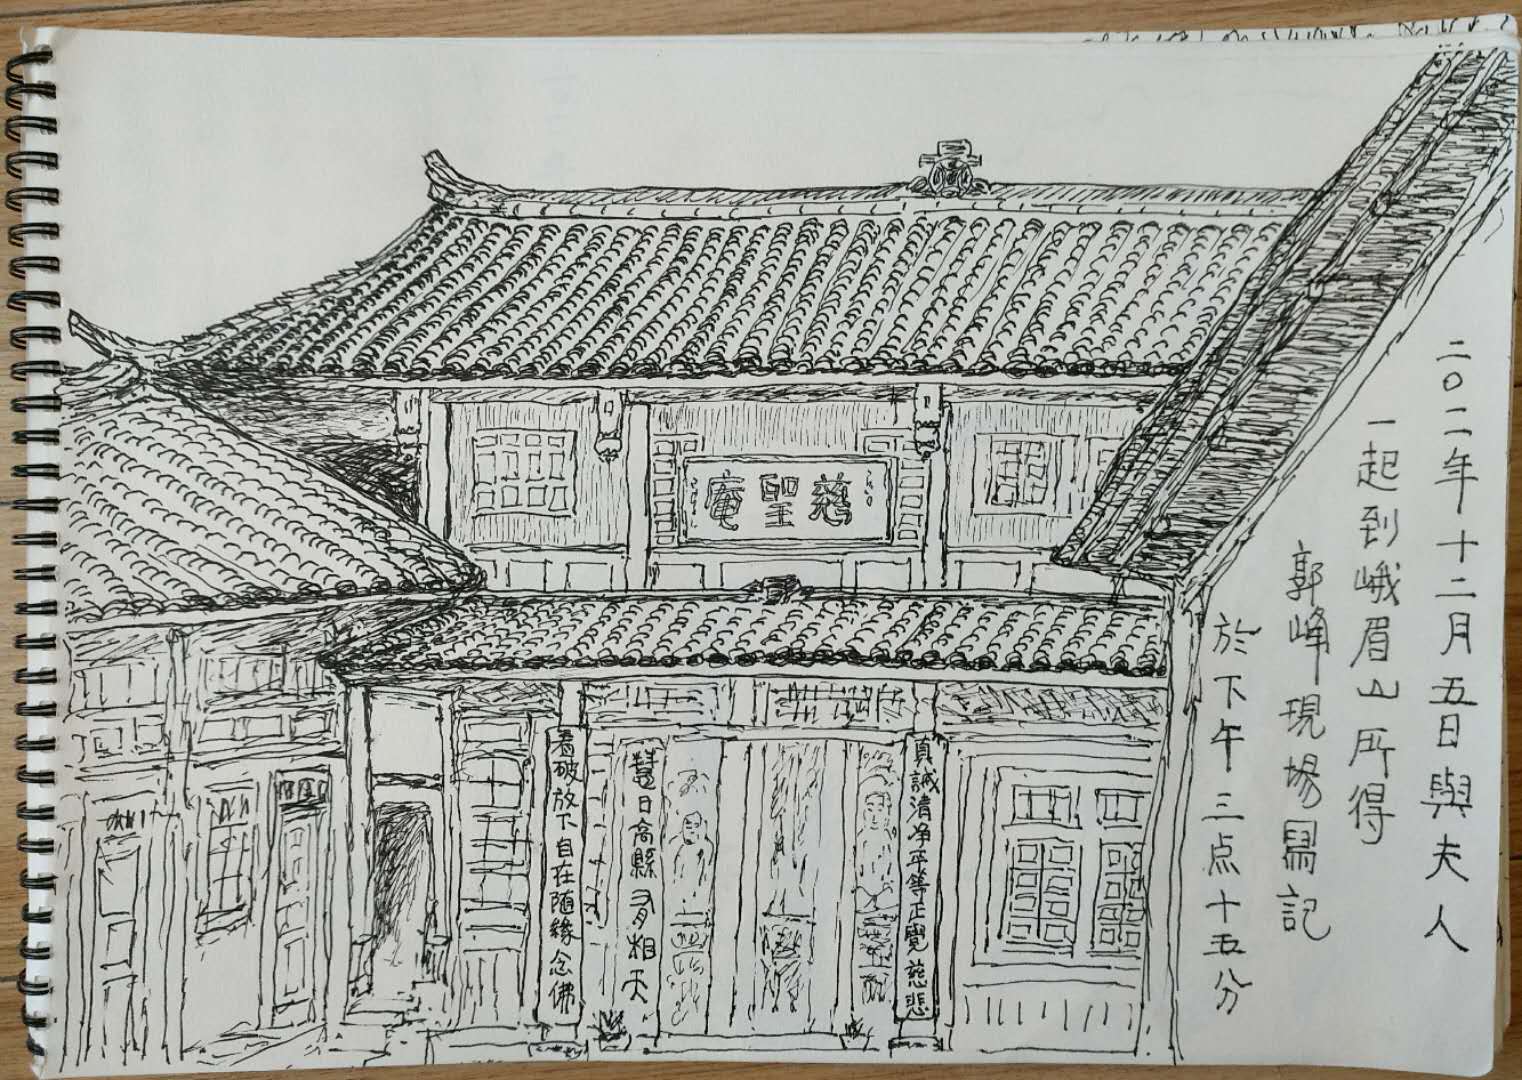 二〇二年十二月五日與夫人
一起到峨眉山所得
郭峰現場寫記
於下午三点十五分
慈聖庵
真誠清净平等正覺慈悲
慧日高縣有相天
看破放下自在随緣念佛